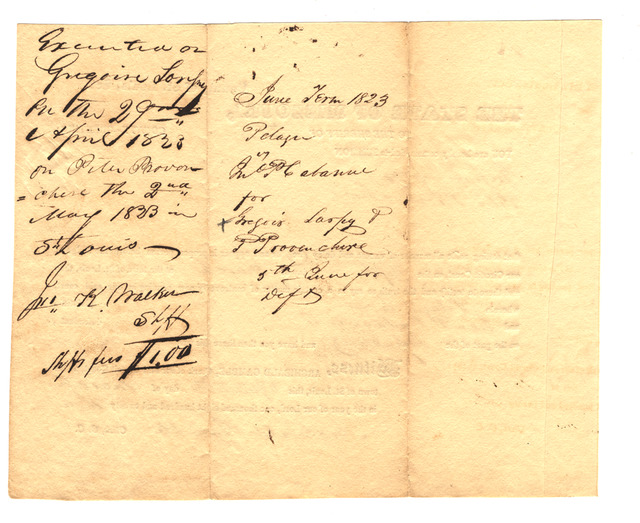 Executed on
Gregoire Sarpy
On the 29
April 1823
on Peter Proven
=chere the 2nd
May 1823 in
St Louis
Jno K. Walker
Shff
Shffs fees $1.00
June Term 1823
Pelagie
vs
Jno P Cabanne
for
+ Gregoir Sarpy
P Provenchere
5th June for
Deft